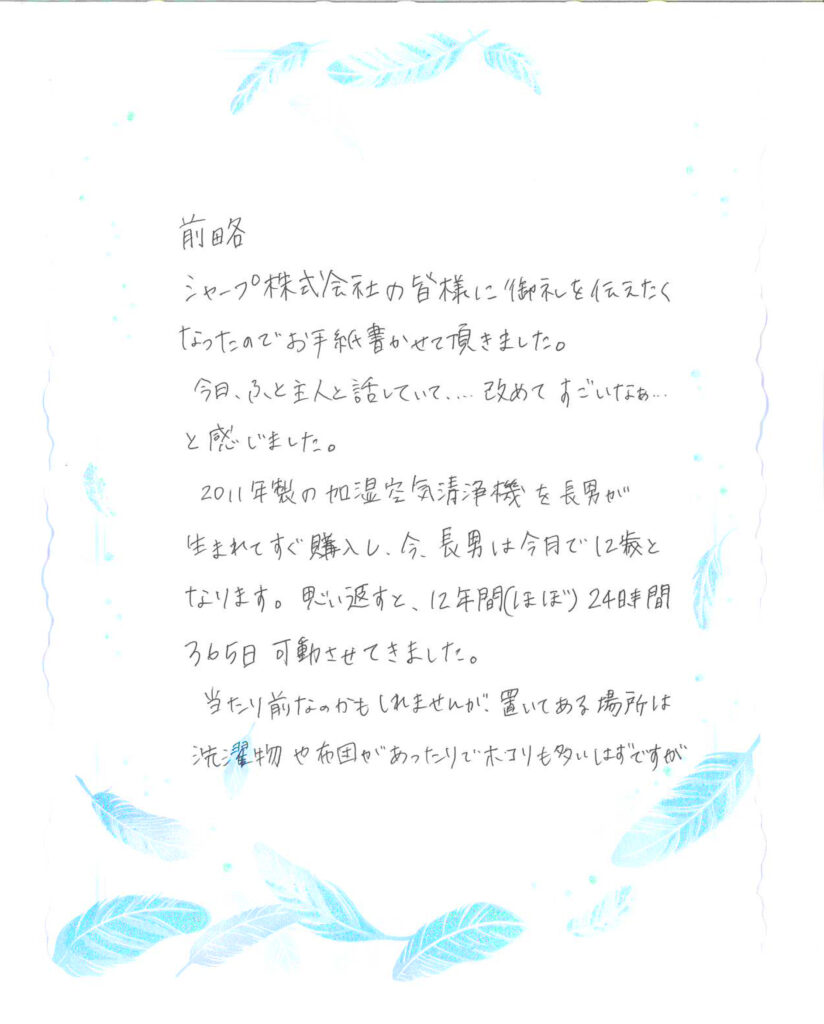 前略
シャープ株式会社の皆様に御礼を伝えたく
なったのでお手紙書かせて頂きました。
今日、ふと主人と話していて.... 改めて すごいなぁ...
と感じました。
2011年製の加湿空気清浄機を長男が
生まれてすぐ購入し、今、長男は今月で12歳と
なります。思い返すと、12年間(ほぼ) 24時間
365日 可動させてきました。
当たり前なのかもしれませんが、置いてある場所は
洗濯物や布団があったりでホコリも多いはずですが